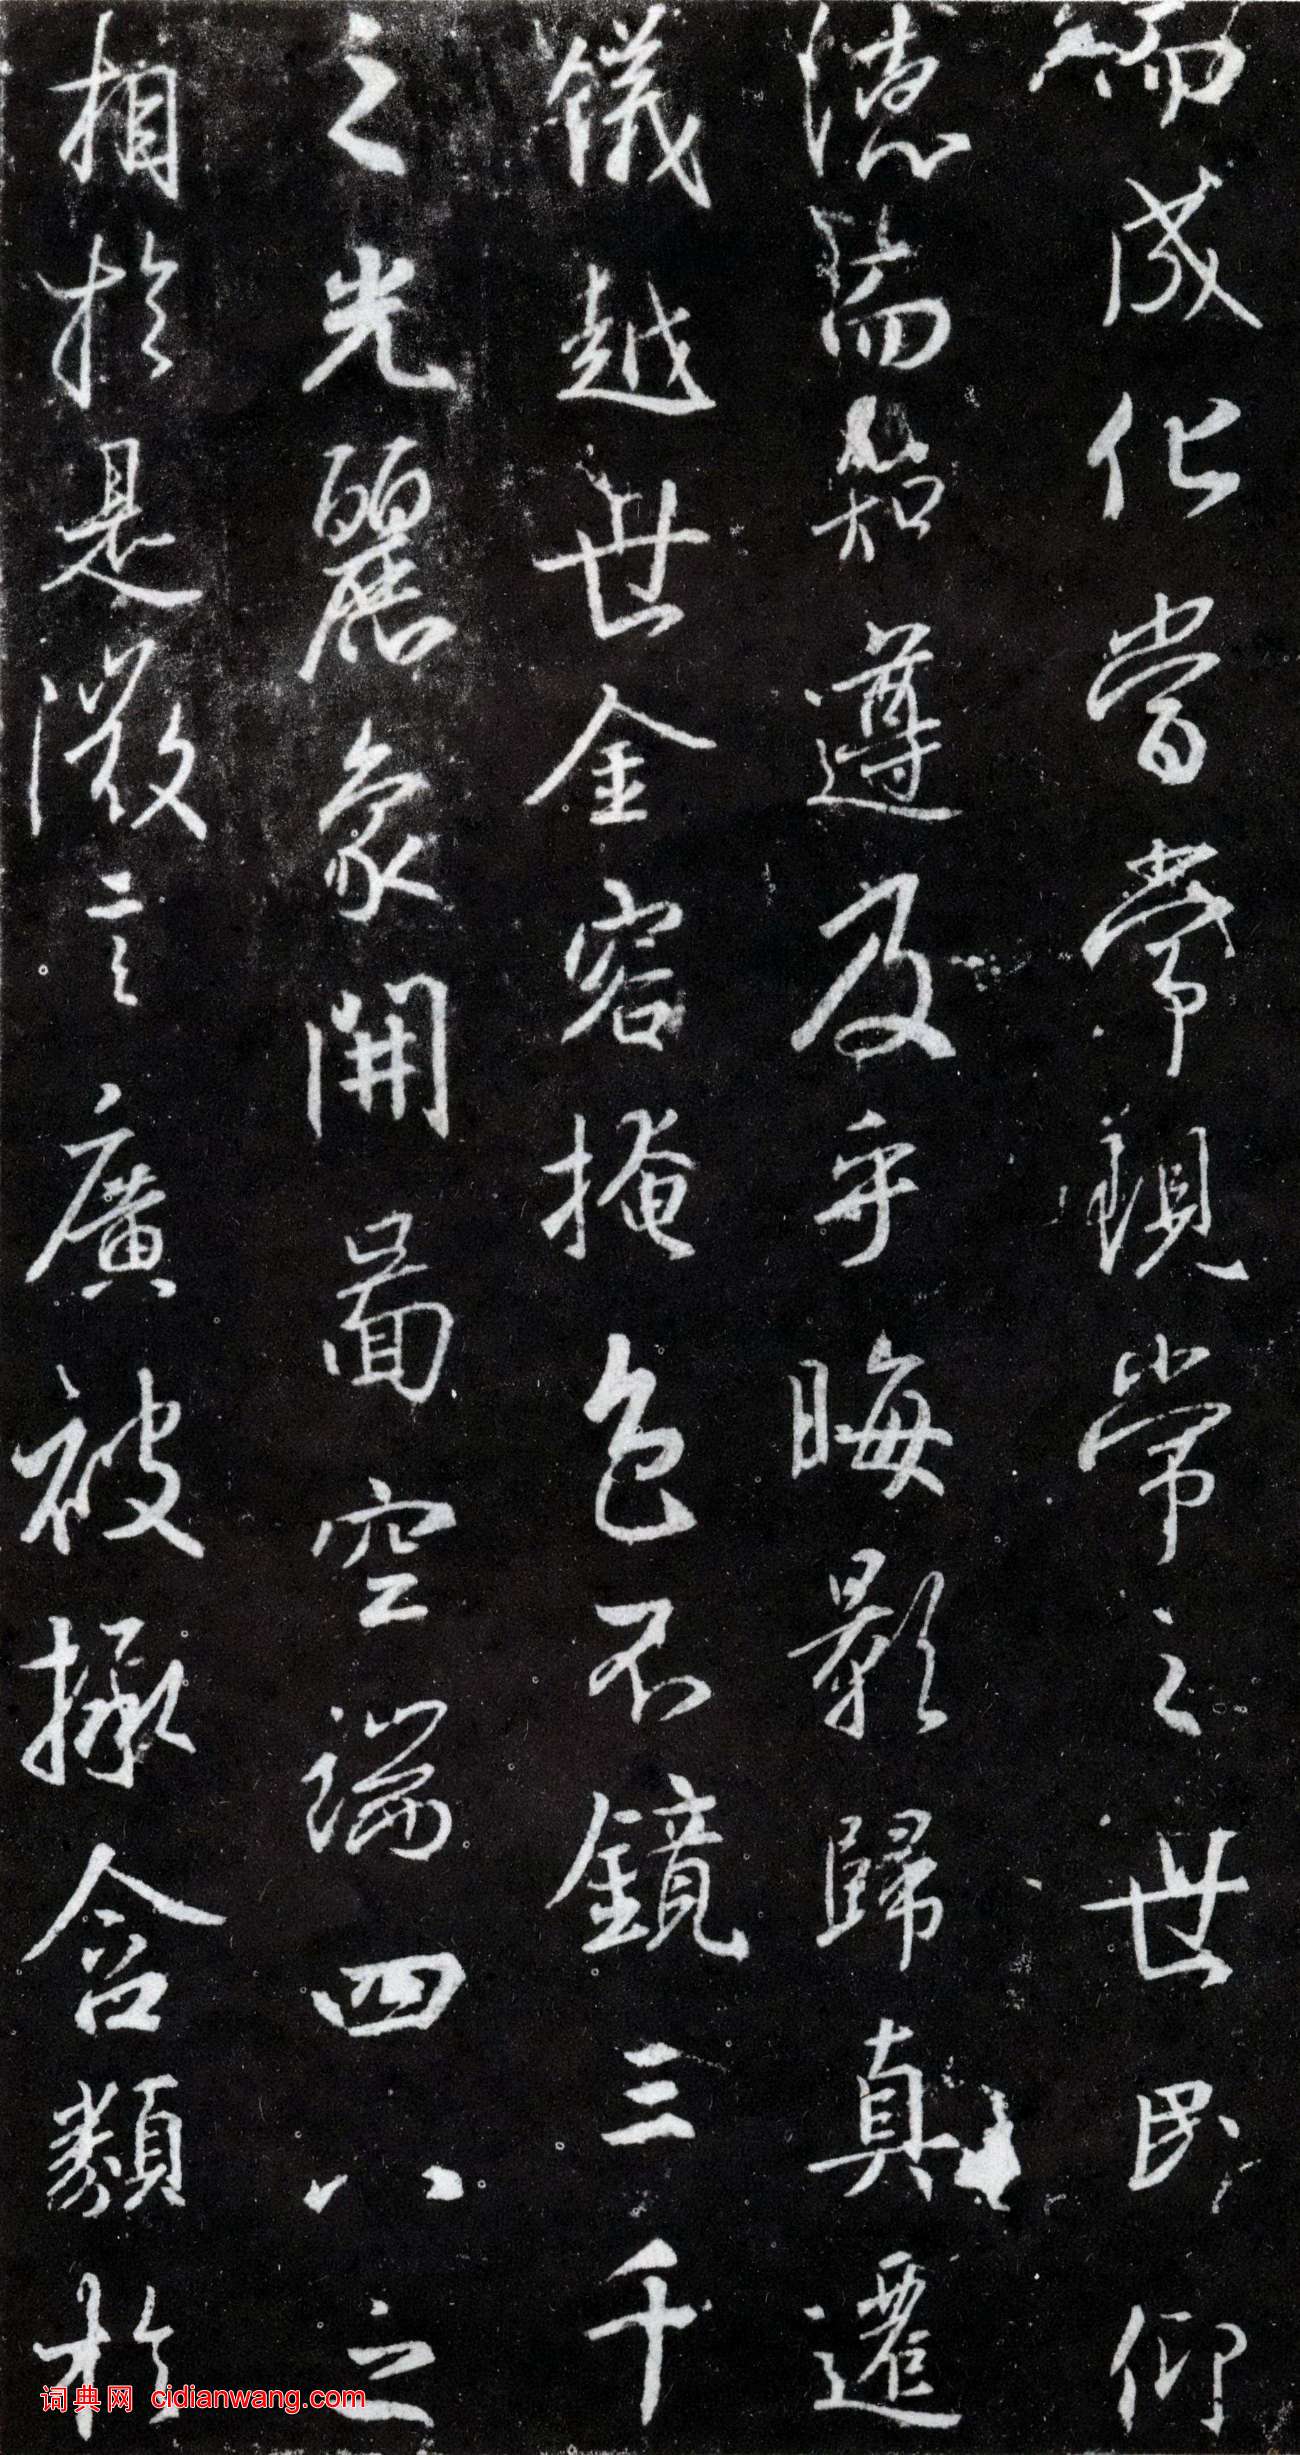 而成化當常現常之世民仰
德而知遵及乎晦影歸真遷
儀越世金容掩色不鏡三千
之光麗象開圖空端四八之
相於是微言廣被拯含類於
词典网 cidianwang.com